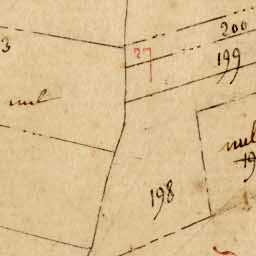 200
3
27
199
nul
nul
19
198